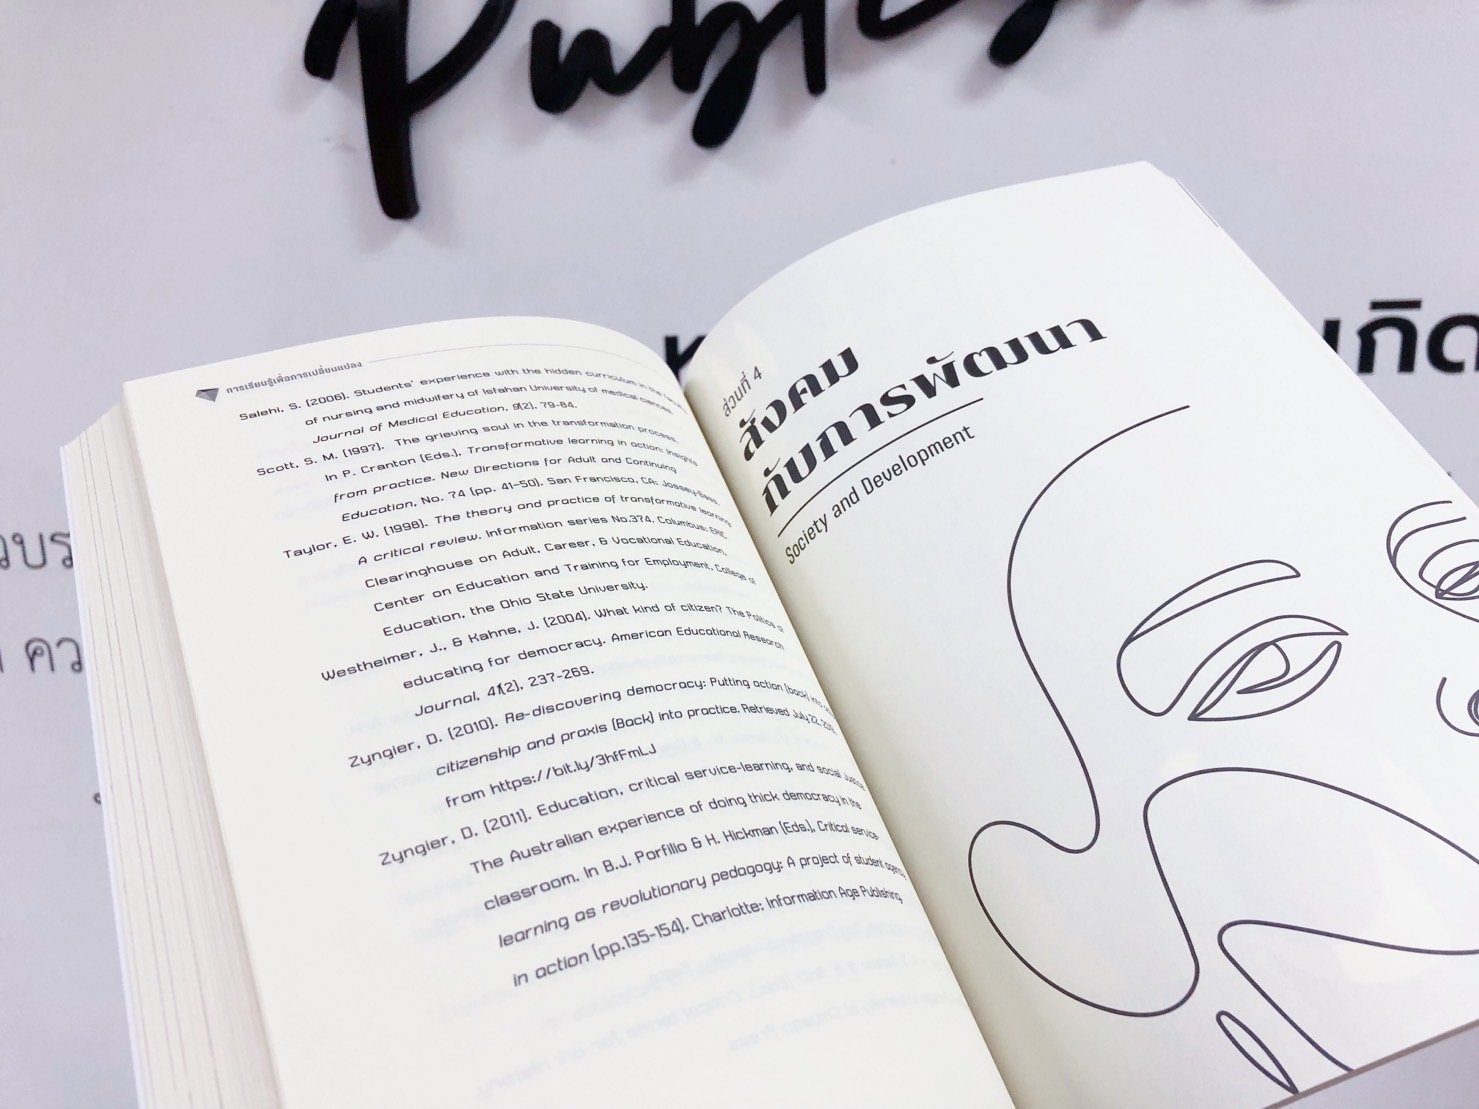 การเรียนรู้เพื่อการเปลี่ยนแปลง
Salehi, S. (2006). Students' experience with the hidden curriculum in the
of nursing and midwifery of Isfahan University of medical
Journal of Medical Education, 9(2), 79-84.
Scott, S. M. (1997). The grieving soul in the transformation process.
In P. Cranton (Eds.), Transformative learning in action: Insights
from practice. New Directions for Adult and Continuing
Education, No. 74 (pp. 41-50). San Francisco, CA: Jossey-Bass.
Taylor, E. W. (1998). The theory and practice of transformative learning:
A critical review. Information series No.374. Columbus: ERIC
Clearinghouse on Adult, Career, & Vocational Education,
Center on Education and Training for Employment, College of
Education, the Ohio State University.
Westheimer, J., & Kahne, J. (2004). What kind of citizen? The Politics of
educating for democracy. American Educational Research
Journal, 41(2), 237-269.
Zyngier, D. (2010). Re-discovering democracy: Putting action (back) into
citizenship and praxis (Back) into practice. Retrieved July 22,
from https://bit.ly/3hfFmLJ
Zyngier, D. (2011). Education, critical service-learning, and social justice
The Australian experience of doing thick democracy in the
classroom. In B.J. Porfilio & H. Hickman (Eds.), Critical service-
learning as revolutionary pedagogy: A project of student agency
in action (pp.135-154). Charlotte: Information Age Publishing.
ส่วนที่ 4
สังคม
กับการพัฒนา
Society and Development